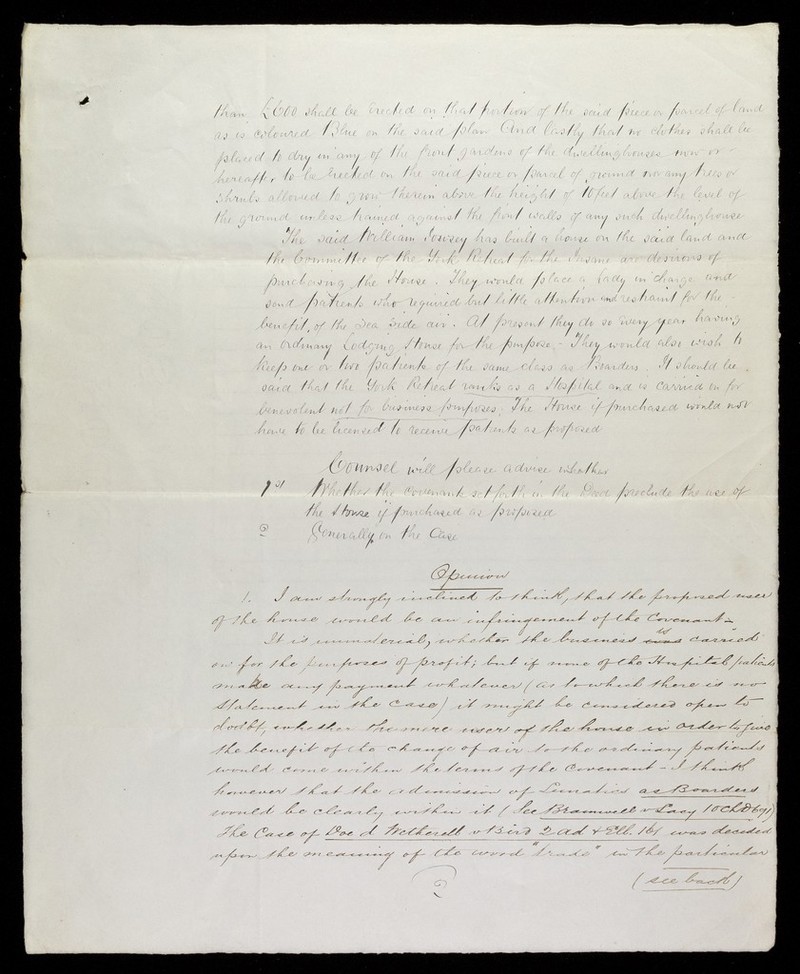 than £600 shall be erected on that portion of the said piece or parcel of land
as is coloured Blue on the said plan And lastly that no clothes shall be
placed to dry in any of the front gardens of the dwellinghouses now or
hereafter to be erected on the said piece or parcel of ground nor any trees or
shrubs allowed to grow therein above the height of 10 feet above the level of
the ground unless trained against the front walls of any such dwellinghouse
The said William Jowsey has built a house on the said land and
the Committee of the York Retreat for the Insane are desirous of
purchasing the House. They would place a lady in charge and
send patients who required but little attention and restraint for the
benefit of the Sea Side air. At present they do so every year having
an ordinary Lodging House for the purpose - They would also wish to
keep one or two patients of the same class as Boarders. It should be
said that the York Retreat ranks as a Hospital and is carried on for
benevolent not for business purposes. The House if purchased would not
have to be licensed to receive patients as proposed
Counsel will please advise whether
1st Whether the covenants set forth in the Deed preclude the use of
the House if purchased as proposed
2 Generally on the Case
Opinion
1. I am strongly inclined to think, that the proposed user
of the house would be an infringement of the Covenant.
It is immaterial, whether the business is carried
on for the purposes of profit; but if none of the Hospital patients
make any payment whatever (as to which there is no
statement in the case) it might be considered open to
doubt, whether the mere user of the house in order to give
the benefit of the change of air to the ordinary patients
would come within the terms of the Covenant - I think
however that the admission of Lunatics as Boarders
would be clearly within it (See Bramwell v Lacy 10 Ch D 691)
The Case of Doe d Wetherell v Bird 2 Ad & Ell. 161 was decided
upon the meaning of the word "trade" in the particular
(see back)